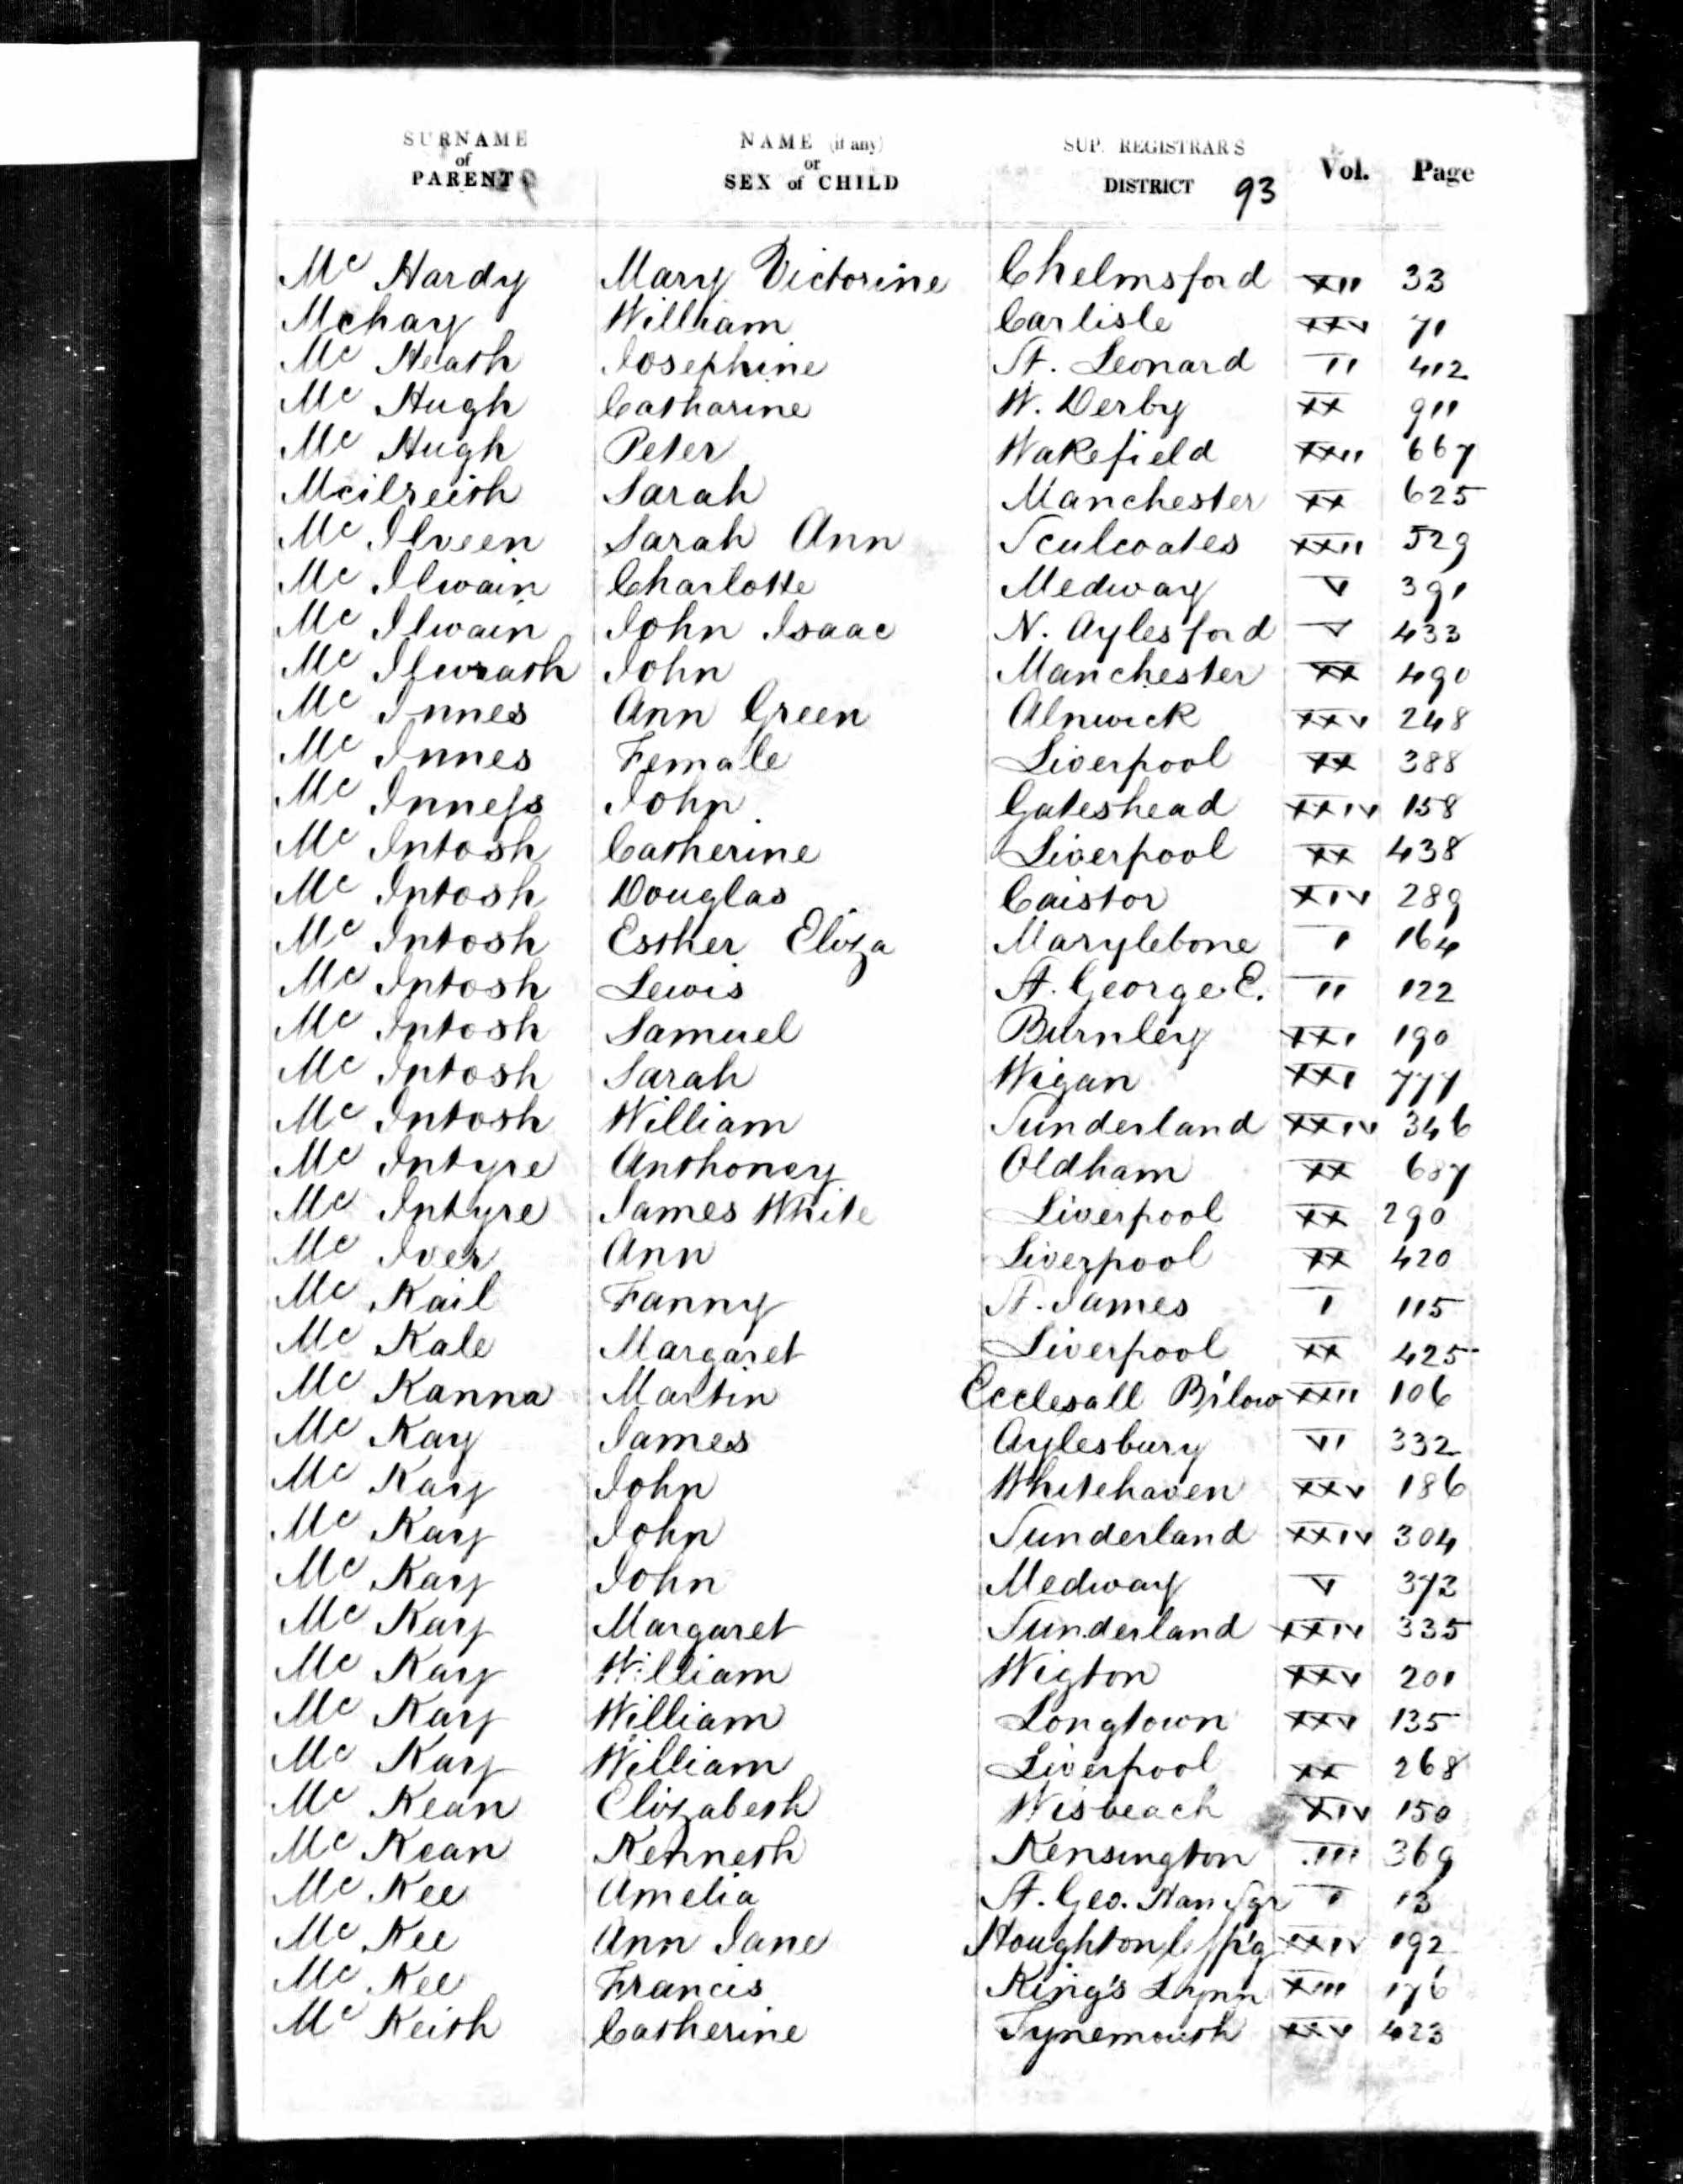 SURNAME of PARENT NAME (if any) or SEX of CHILD SUP. REGISTRARS DISTRICT 93 Vol. Page
Mc Hardy Mary Victorine Chelmsford XII 33
Mchay William Carlisle XXV 71
Mc Heath Josephine St. Leonard II 412
Mc Hugh Catharine W. Derby XX 911
Mc Hugh Peter Wakefield XXII 667
Mcilreith Sarah Manchester XX 625
Mc Ilveen Sarah Ann Sculcoates XXII 529
Mc Ilwain Charlotte Medway V 391
Mc Ilwain John Isaac N. Aylesford V 433
Mc Ilwrath John Manchester XX 490
Mc Innes Ann Green Alnwick XXV 248
Mc Innes Female Liverpool XX 388
Mc Inness John Gateshead XXIV 158
Mc Intosh Catherine Liverpool XX 438
Mc Intosh Douglas Caistor XIV 289
Mc Intosh Esther Eliza Marylebone I 164
Mc Intosh Lewis St. George E. II 122
Mc Intosh Samuel Burnley XXI 190
Mc Intosh Sarah Wigan XXI 777
Mc Intosh William Sunderland XXIV 346
Mc Intyre Anthoney Oldham XX 687
Mc Intyre James White Liverpool XX 290
Mc Iver Ann Liverpool XX 420
Mc Kail Fanny St. James I 115
Mc Kale Margaret Liverpool XX 425
Mc Kanna Martin Ecclesall B'low XXII 106
Mc Kay James Aylesbury VI 332
Mc Kay John Whitehaven XXV 186
Mc Kay John Sunderland XXIV 304
Mc Kay John Medway V 372
Mc Kay Margaret Sunderland XXIV 335
Mc Kay William Wigton XXV 201
Mc Kay William Longtown XXV 135
Mc Kay William Liverpool XX 268
Mc Kean Elizabeth Wisbeach XIV 150
Mc Kean Kenneth Kensington III 369
Mc Kee Amelia St. Geo. Han Sqr I 13
Mc Kee Ann Jane Houghton l Sp'g XXIV 192
Mc Kee Francis King's Lynn XIII 176
Mc Keith Catherine Tynemouth XXV 423